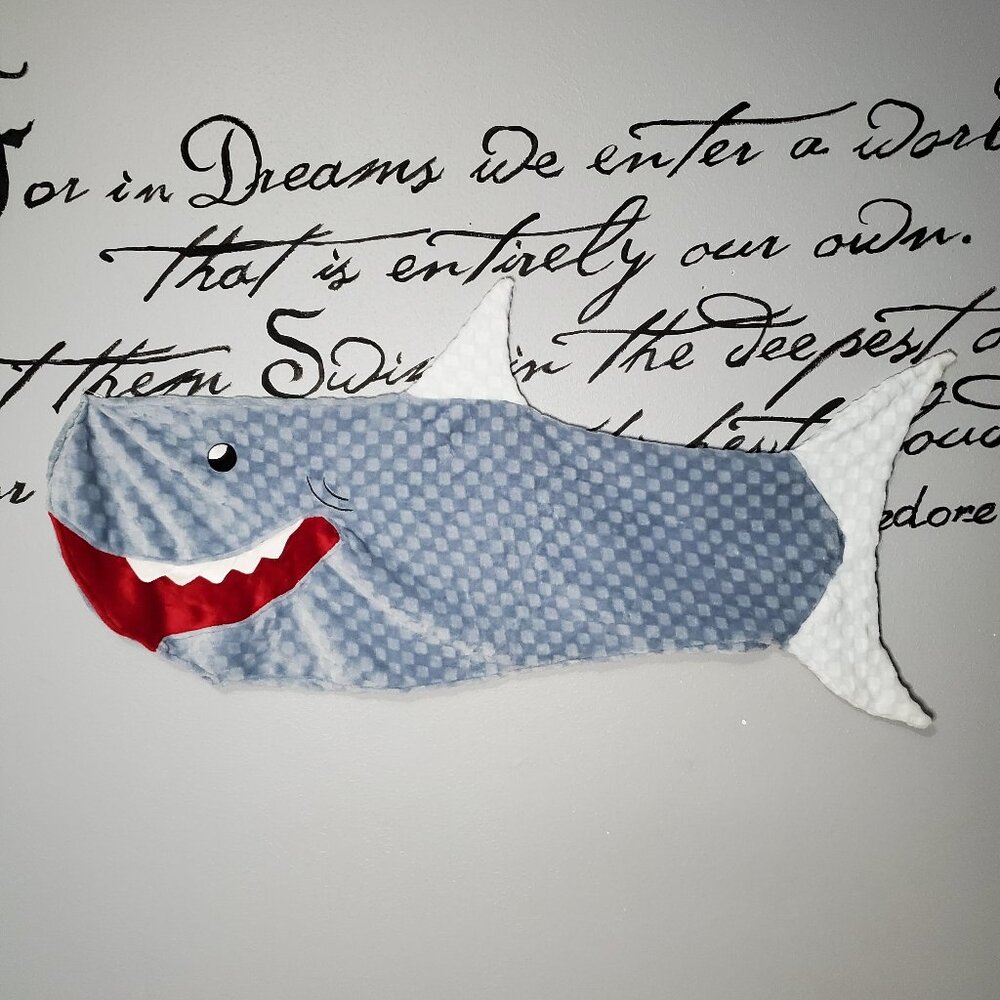 For in Dreams we enter a worl
that is entirely our own.
t them Swim in the deepest o
r hest loud
edore